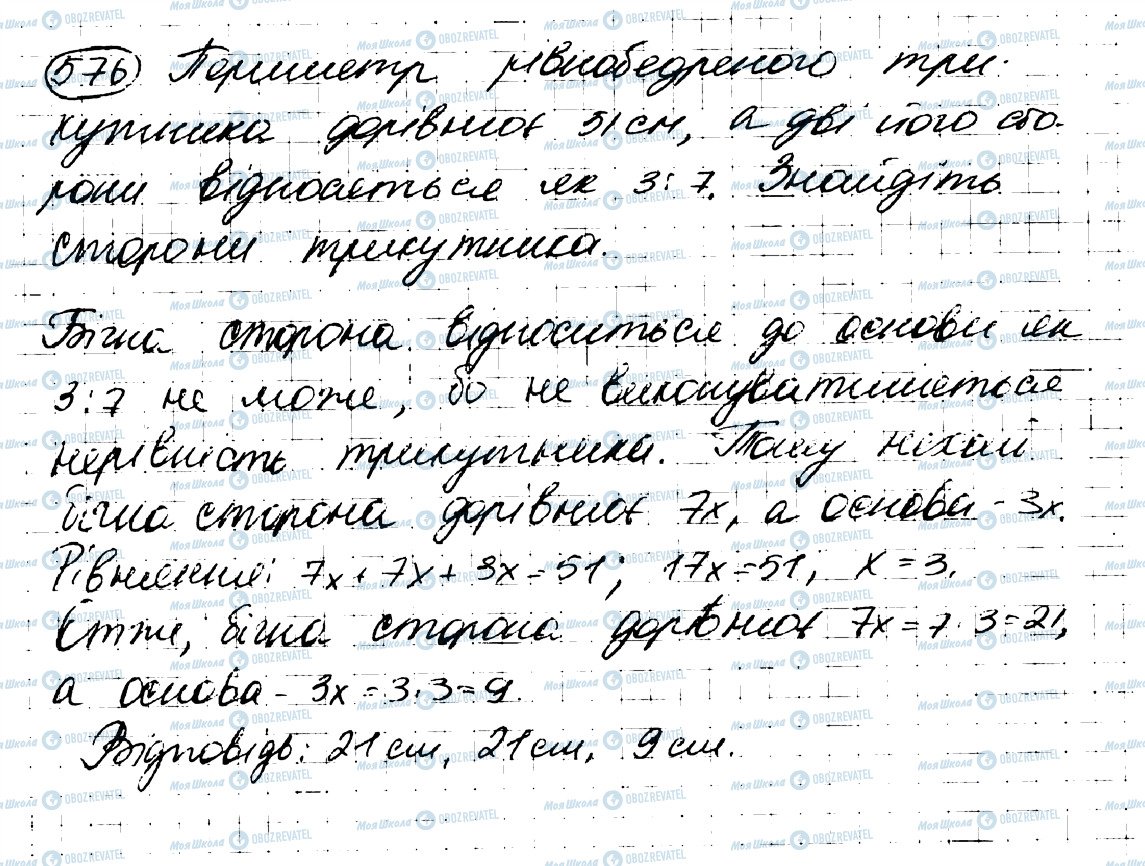 576 Периметр рівнобедреного три-
кутника дорівнює 51 см, а дві його сто-
рони відносяться як 3:7. Знайдіть
сторони трикутника.
Бічна сторона відноситься до основи як
3:7 не може, бо не виконуватиметься
нерівність трикутника. Тому нехай
бічна сторона дорівнює 7x, а основа - 3x.
Рівняння: 7x+7x+3x=51; 17x=51, x=3.
Отже, бічна сторона дорівнює 7x=7·3=21,
а основа - 3x=3·3=9.
Відповідь: 21 см, 21 см, 9 см.